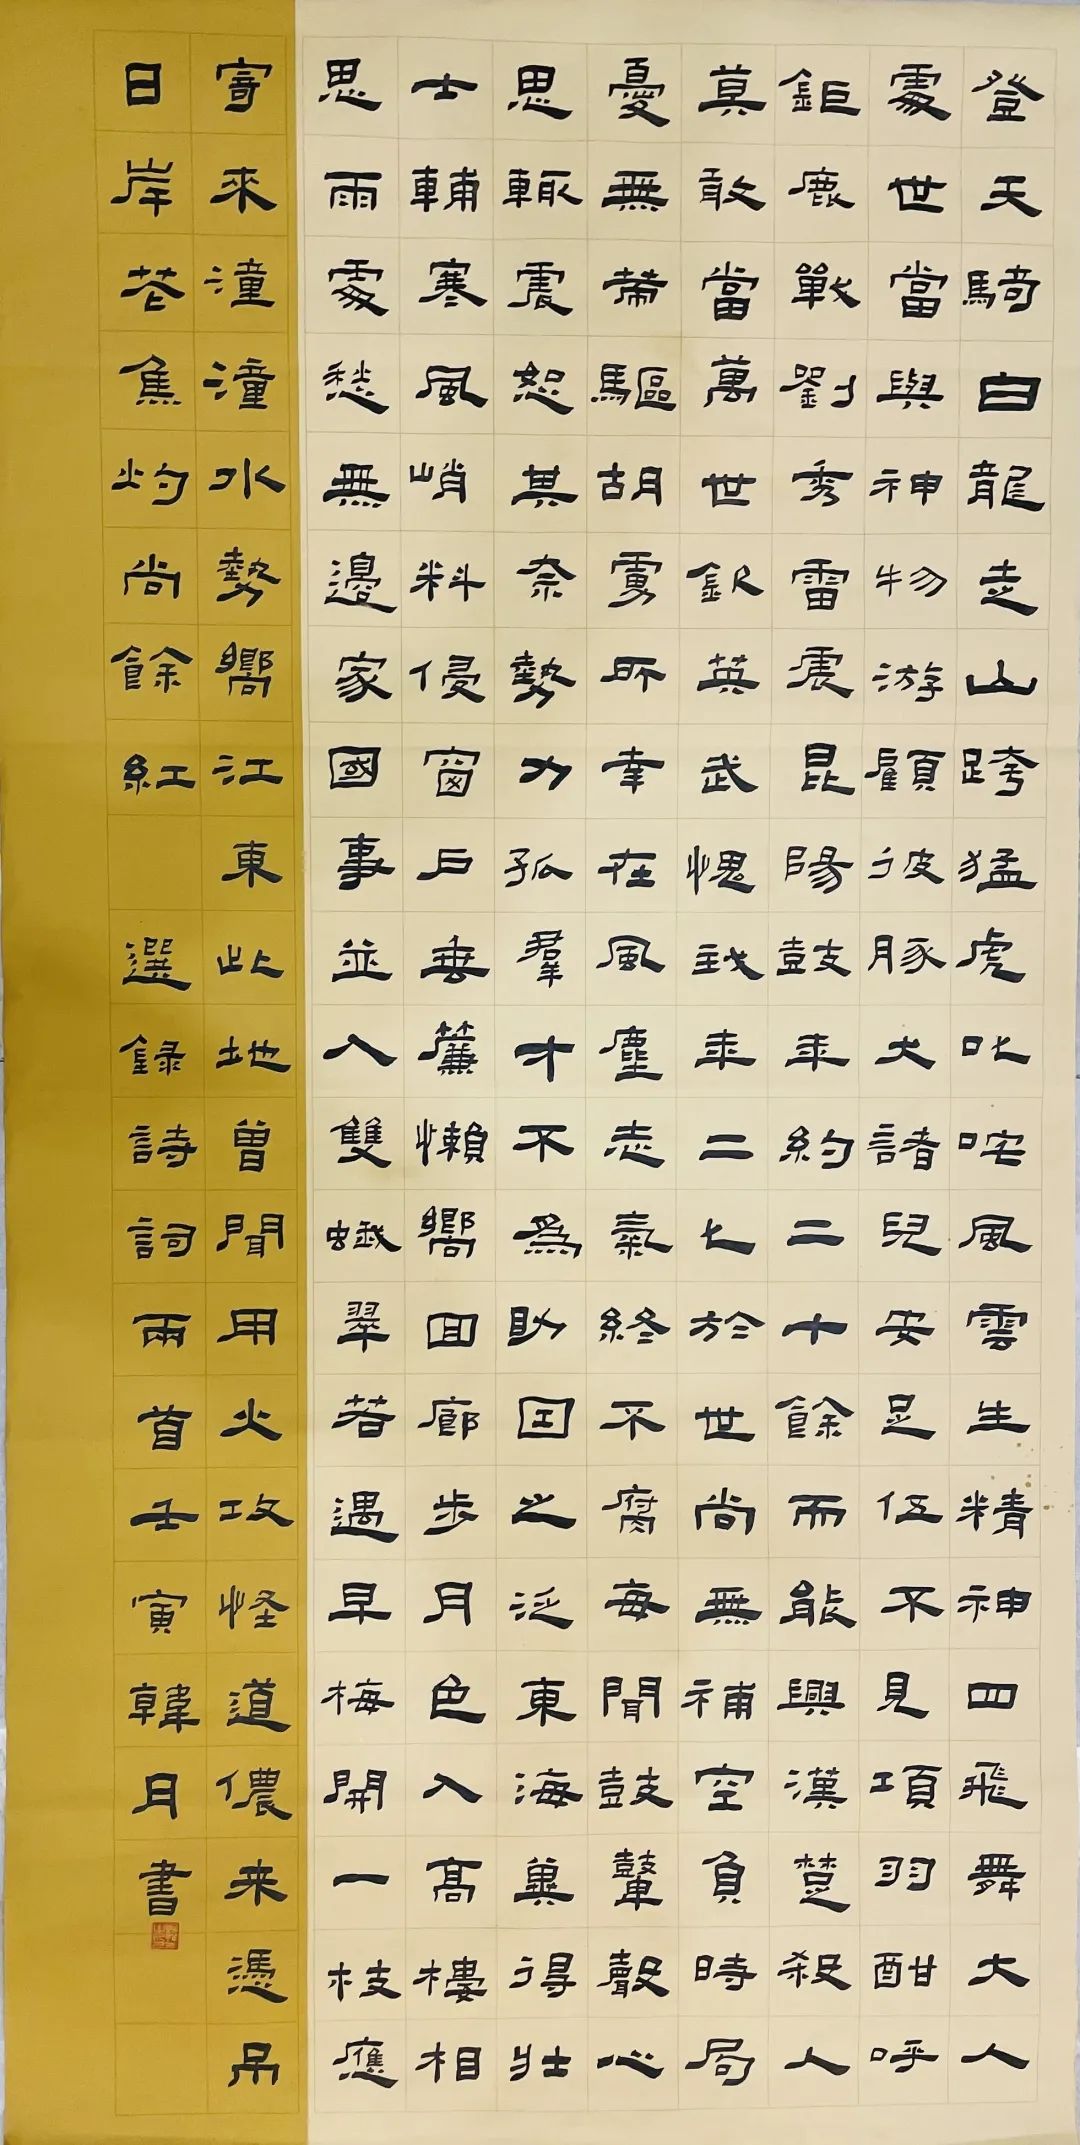 登天騎白龍走山跨猛虎叱咤風雲生精神四飛舞大人
處世當與神物游顧彼豚犬諸兒安足伍不見項羽酣呼
鉅鹿戰劉秀雷震昆陽鼓年約二十餘而能興漢楚殺人
莫敢當萬世欽英武愧我年二七於世尚無補空負時局
憂無策驅胡虜所幸在風塵志氣終不腐每聞鼓鼙聲心
思輒震恕其奈勢力孤羣才不為助因之泛東海冀得壯
士輔寒風峭料侵窗戶垂簾懶響回廊步月色入高樓相
思雨處愁無邊家國事並入雙蛾翠若遇早梅開一枝應
寄來潼潼水勢響江東此地曾聞用火攻怪道儂来憑吊
日岸花焦灼尚餘紅 選録詩詞兩首壬寅韓月書